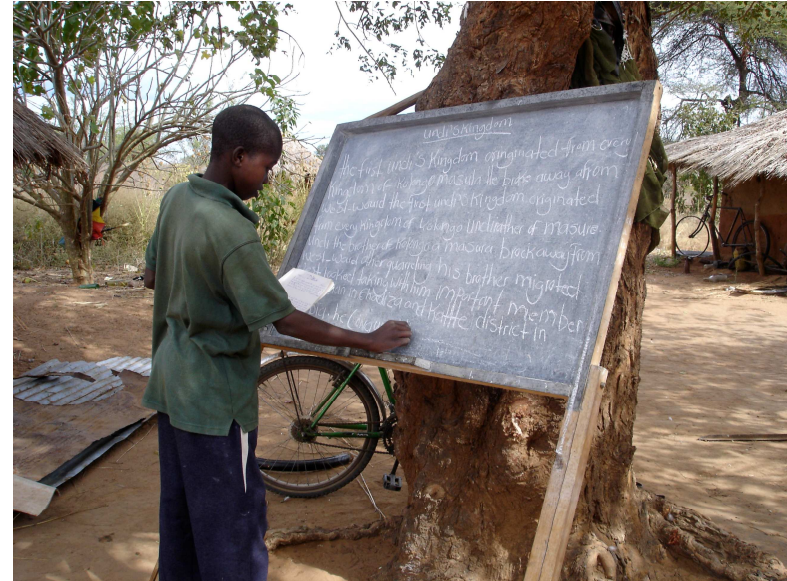 undi's Kingdom
the first undi's Kingdom originated from every
Kingdom of Kalonga masula he broke away from
west would the first undi's Kingdom originated
from every kingdom of Kalonga undi brother of masure-
undi the brother of Kalonga masura brock away from
west would over quarding his brother migrated
taking with him important member
and hatfte district in
he